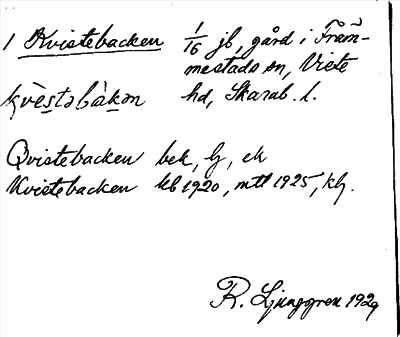 1 Kvistebacken 1/16 jb, gård i Främ-
mestads sn, Viste
kvèstəbàkən hd, Skarab. l.
Qvistebacken bek, lj, ek
Kvistebacken kb 1920, mtl 1925, kLj.
R. Ljunggren 1929